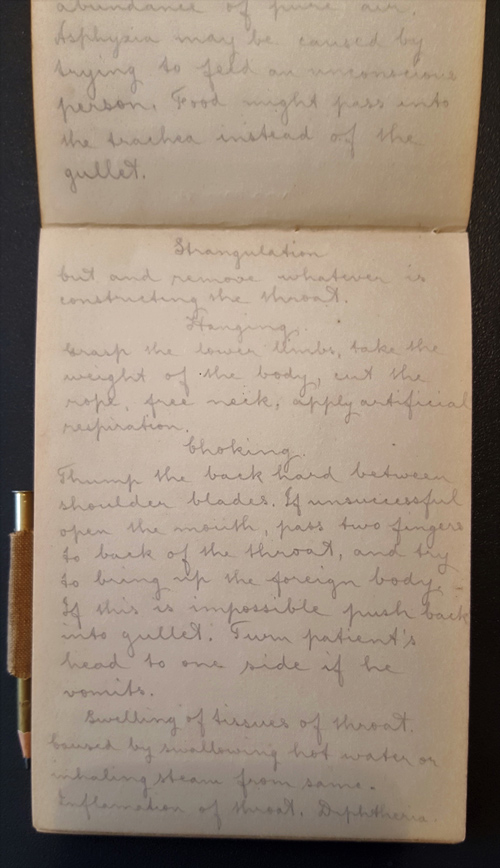 abundance of pure air.
Asphyxia may be caused by
trying to feed an unconscious
person. Food might pass into
the trachea instead of the
gullet.
Strangulation
but and remove whatever is
constructing the throat.
Hanging.
Grasp the lower limbs, take the
weight of the body, cut the
rope, free neck, apply artificial
respiration.
Choking.
Thump the back hard between
shoulder blades. If unsuccessful
open the mouth, pass two fingers
to back of the throat, and try
to bring up the foreign body.
If this is impossible push back
into gullet. Turn patient's
head to one side if he
vomits.
Swelling of tissues of throat.
Caused by swallowing hot water or
inhaling steam from same.
Inflamation of throat. Diphtheria.